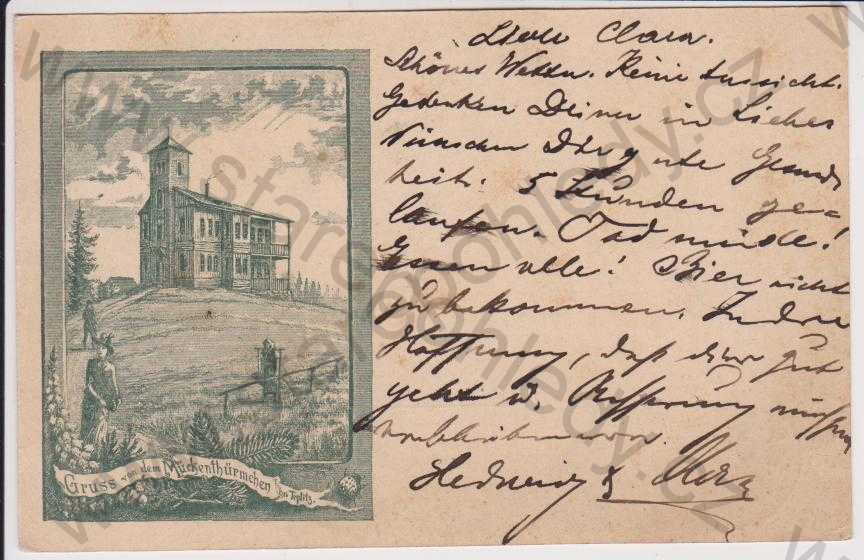 Liebe Clara.
Schönes Wetter. Keine Aussicht.
Gedenken Deiner in Liebe
Wünschen Dir gute Gesund-
heit. 5 Stunden ge-
laufen. Tod müde!
! Bier nicht
zu bekommen. In der
Hoffnung, daß dir gut
geht u.
Hedwig &
Gruss von dem Mückenthürmchen bei Teplitz.
www.stare-pohledy.cz